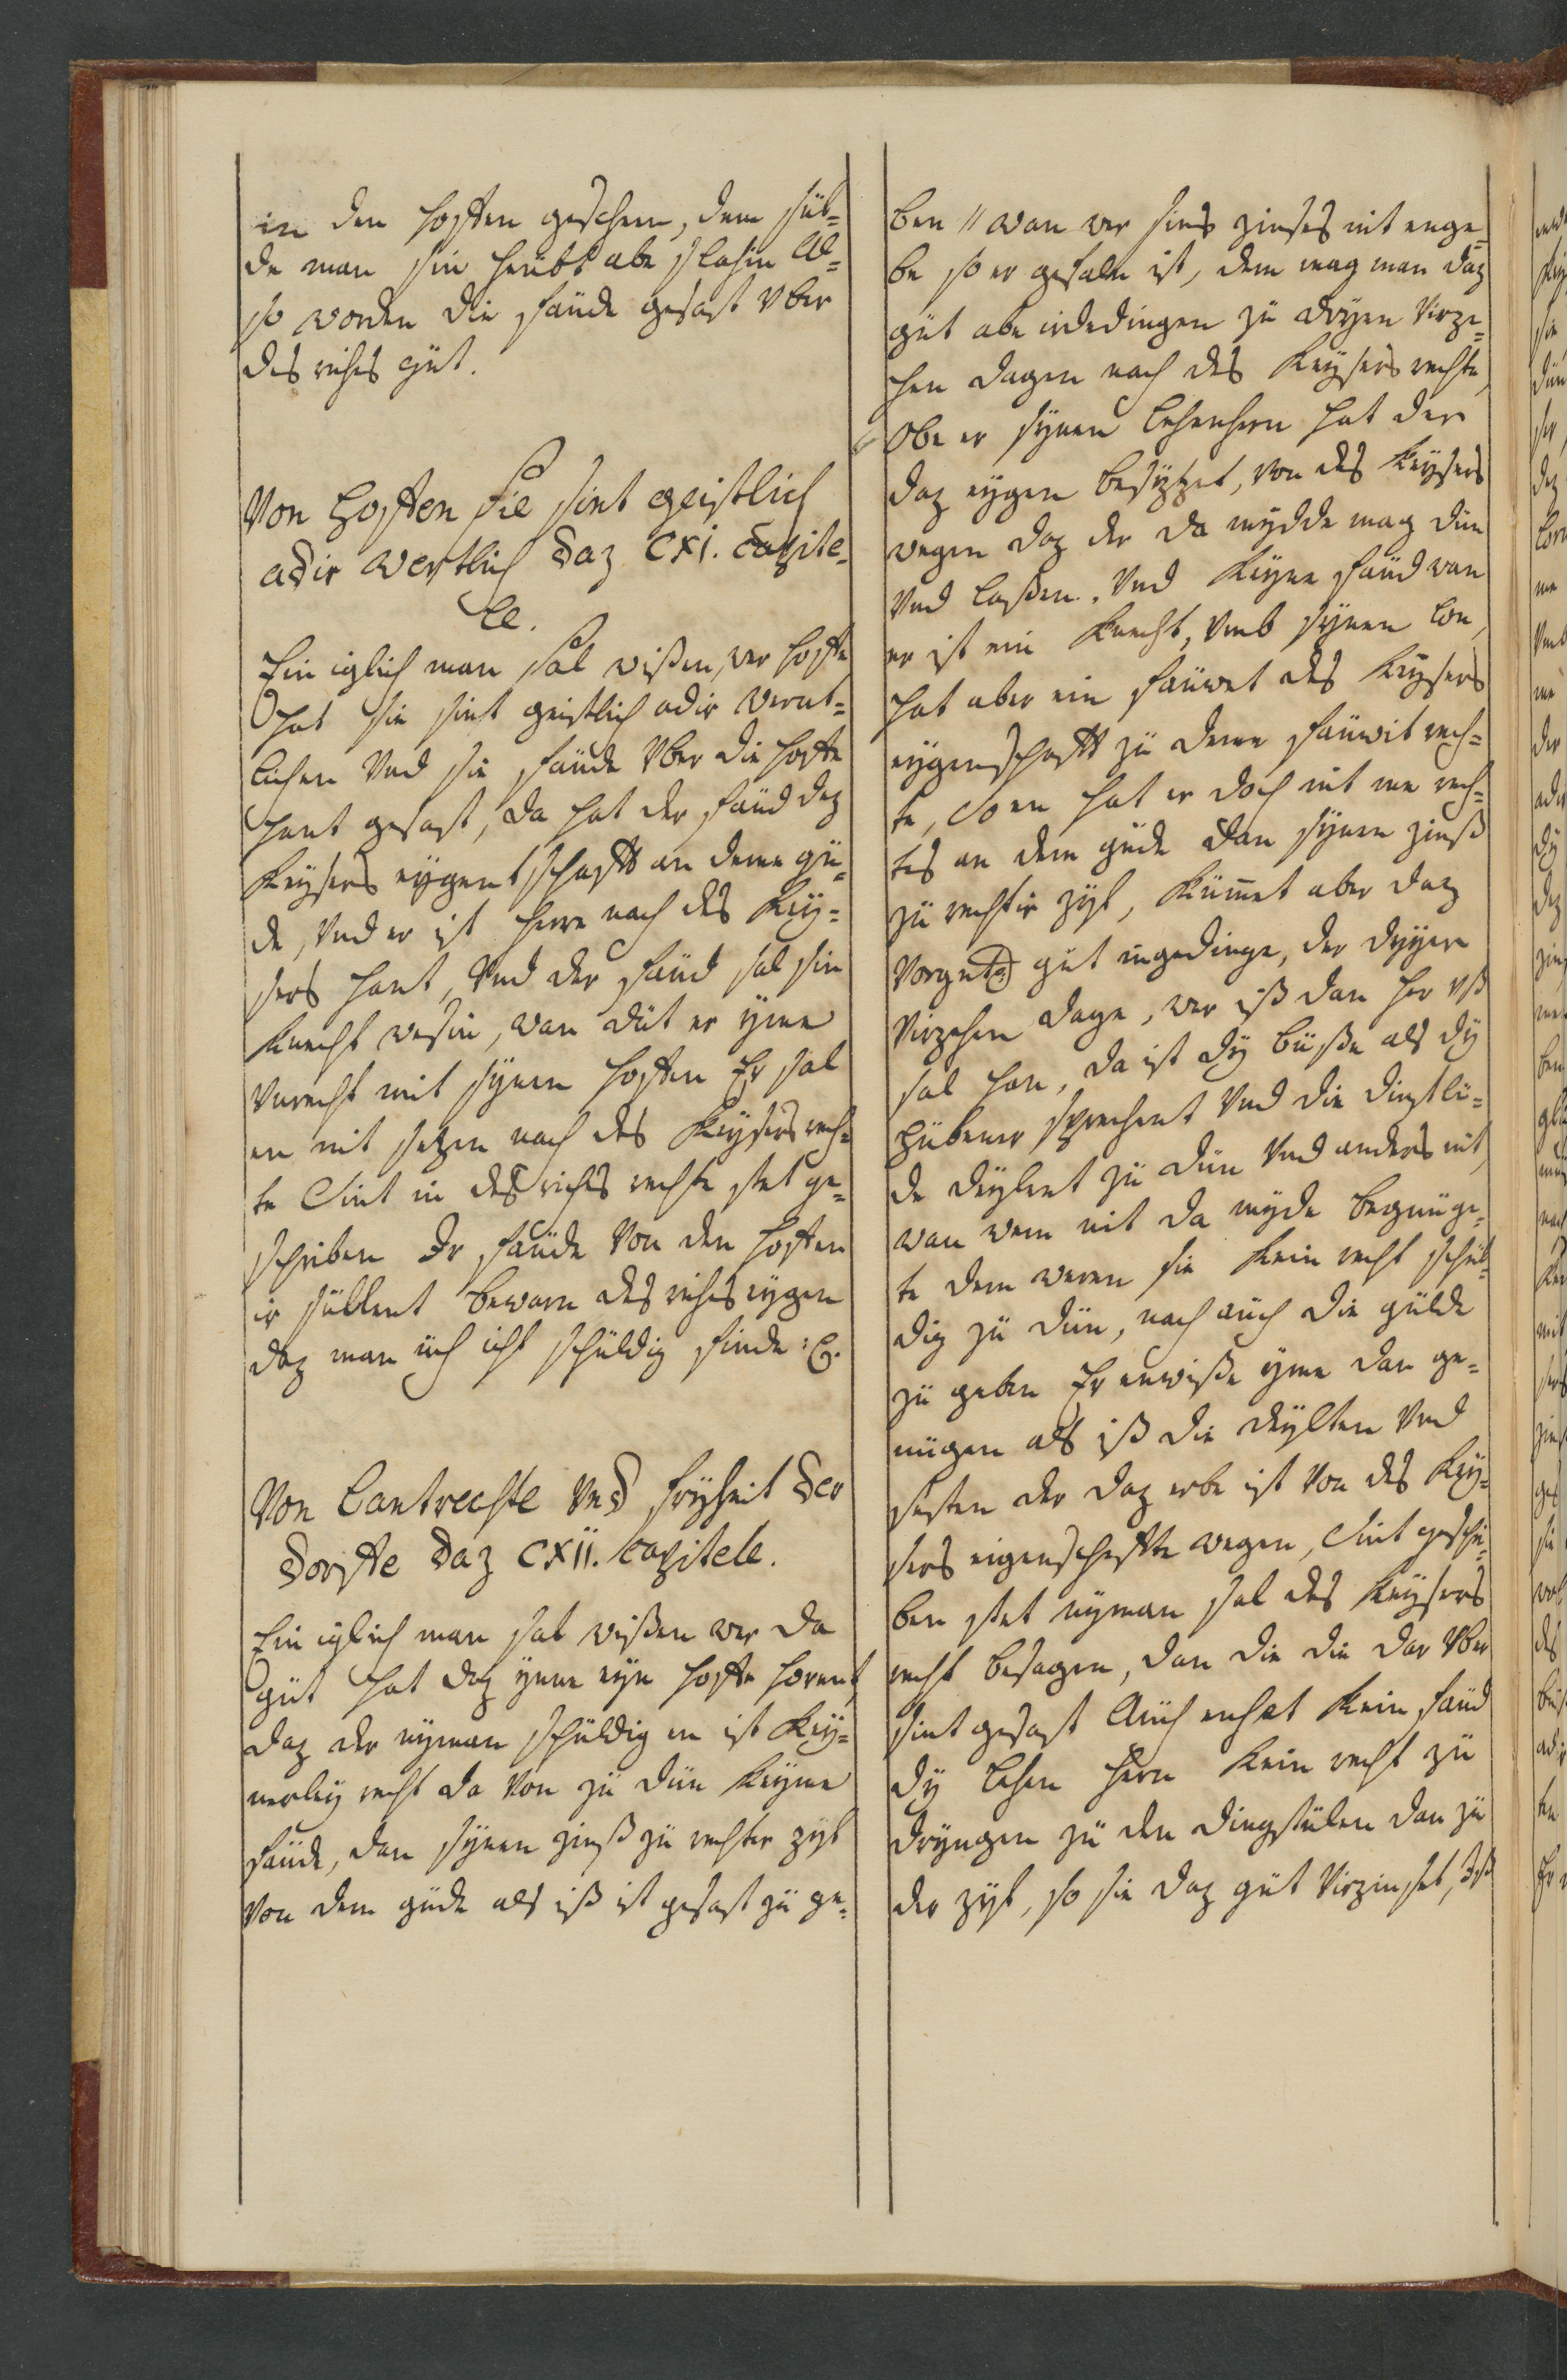 in den hoffen geschem, dem sül=
de man sin heübt abe slahin Al=
so worden die faüde gesast vber
des riches güt.
Von Hoffen sie sint geistlich
adir wertlich daz CXI. Capite=
le.
Ein iglich man sal wißen, wer hoffe
hat sie sint geistlich adir wernt=
lichen Vnd sie faüde vber die hoffe
hant gesast, da hat der faüd dez
Keysers eygentschafft an deme gü=
de, Vnd er ist herre nach des Key=
sers hant, Vnd der faüd sal sin
Knecht wesin, wan düt er yme
Vnrecht mit synen hoffen Er sal
en nit setzen nach des Keysers rech=
te Sint in des riches rechte stet ge=
schriben Ir faüde von den hoffen
ir süllent bewarn des riches eygen
daz man üch icht schüldig finde :
Von Lantrechte Vnd fryheit der
dorffe daz CXII. Capitele.
Ein iglich man sal wißen wer da
güt hat daz ynne eyn hoffe horent,
daz der nyman schüldig en ist Key=
nerley recht da von zü dün Keyme
faüde, dan synen zinß zü rechter zyt
von dem güde als iß ist gesast zü ge=
ben // wan wer sins zinses nit enge=
be so er gefaln ist, dem mag man daz
güt abe irdedingen zü dryen virze=
hen dagen nach des Keysers rechte,
Obe er synen lehenhern hat der
daz eygen besytzet, von des Keysers
wegen daz der da mydde mag dün
Vnd laßen. Vnd Keyne faüd wan
er ist ein Knecht, vmb synen lon,
hat aber ein faüwet des Keysers
eygenschafft zü deme faüwit rech=
te, So en hat er doch nit me rech=
tes an dem güde dan synen zinß
zü rechtir zyt, Kümet aber daz
Vorgnt. güt ingedinge, der dryen
Virzehen dage, wer iß dan her vß
sal han, da ist dy büße als dy
hübener sprechent Vnd die dinstlü=
de deylent zü dün Vnd anders nit,
wan wem nit da myde begnüge=
te dem weren sie Kein recht schül=
dig zü dün, noch auch die gülde
zü geben Er enwiße yme dan ge=
nügen als iß die deylten Vnd
sesten der daz erbe ist von des Key=
sers eigenschaffte wegen, Sint geschri=
ben stet nyman sal des Keysers
recht besagen, dan die die dar vber
sint gesast Auch enhat Kein faüd
dy lehen hern Kein recht zü
dryngen zü den dingstülen dan zü
der zyt, so sie daz güt virzinset, Iß